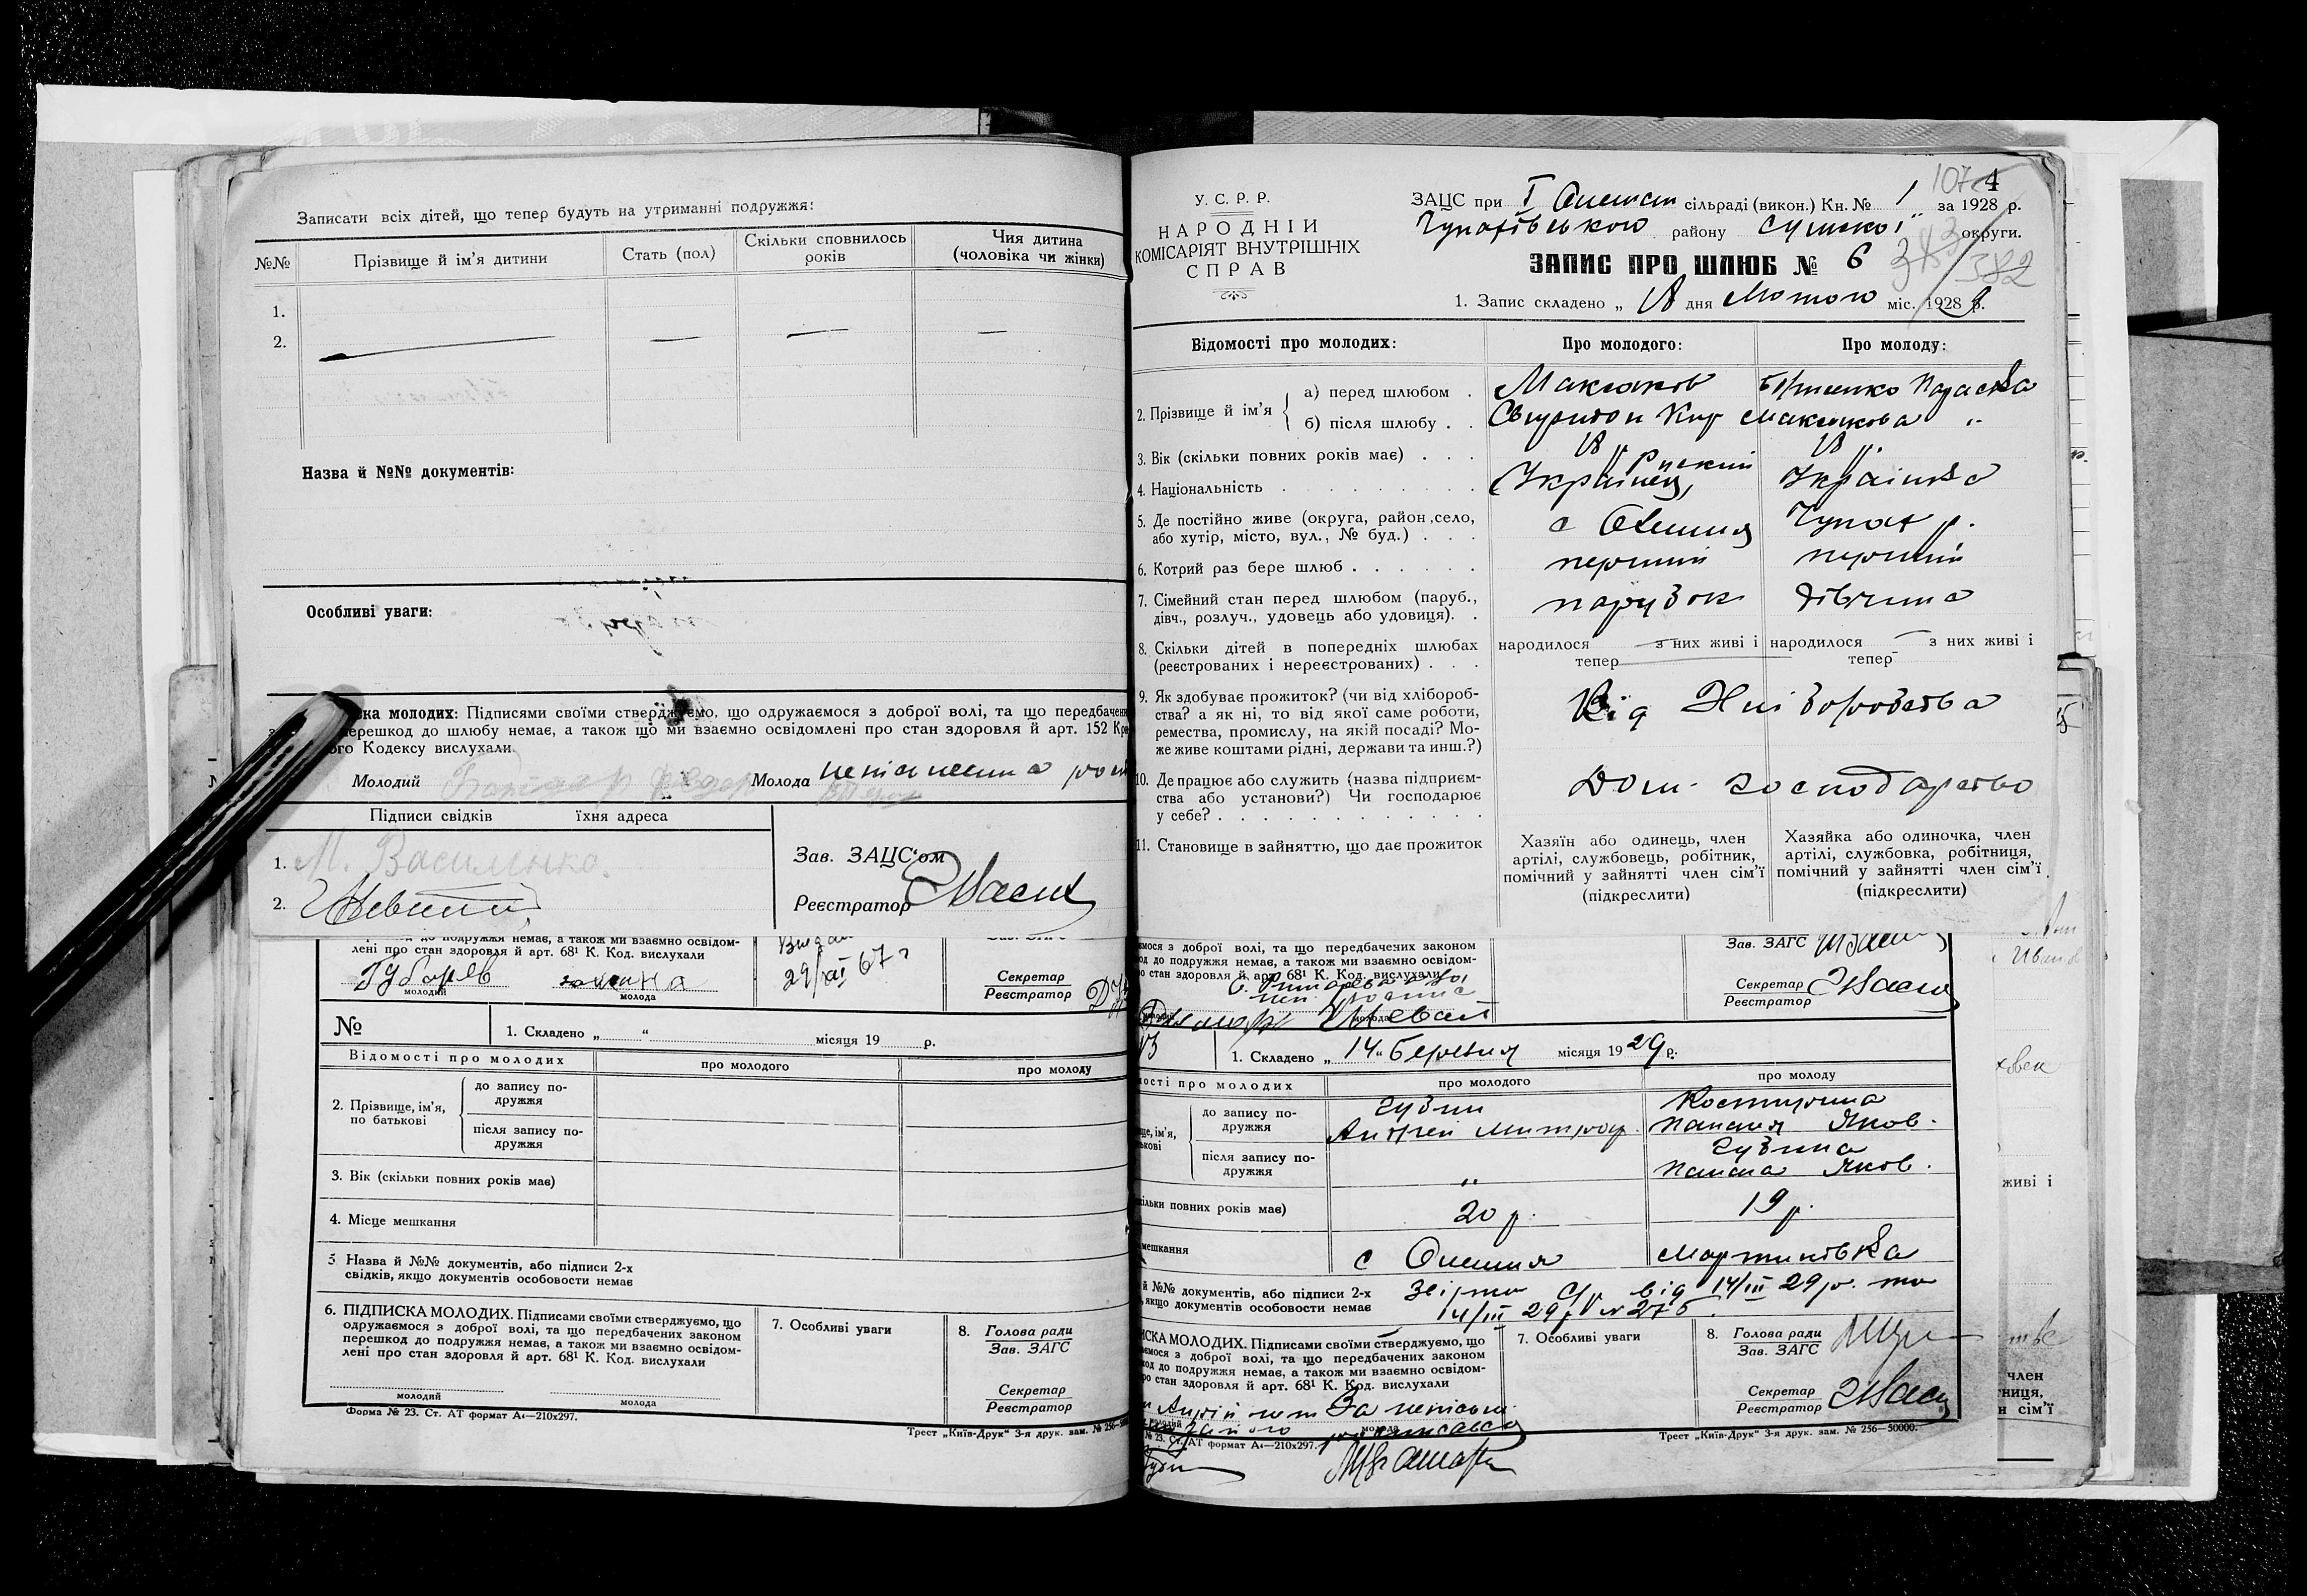 Записати всіх дітей, що тепер будуть на утриманні подружжя:
№№ Прізвище й ім'я дитини Стать (пол) Скільки сповнилось років Чия дитина (чоловіка чи жінки)
1.
2. — — — —
Назва й №№ документів:
Особливі уваги:
ка молодих: Підписями своїми стверджуємо, що одружаємося з доброї волі, та що передбачени
перешкод до шлюбу немає, а також що ми взаємно освідомлені про стан здоровля й арт. 152 Кри
ого Кодексу вислухали
Молодий Молода
Підписи свідків їхня адреса
1. М. Василенко.
2.
Зав. ЗАЦС'ом
Реєстратор
до подружжя немає, а також ми взаємно освідом-
лені про стан здоровля й арт. 68¹ К. Код. вислухали
Губарєв
молодий молода
29/XI 67 г
Секретар
Реєстратор
№ 1. Складено „ “ місяця 19 р.
Відомості про молодих про молодого про молоду
2. Прізвище, ім'я, по батькові
до запису по-
дружжя
після запису по-
дружжя
3. Вік (скільки повних років має)
4. Місце мешкання
5 Назва й №№ документів, або підписи 2-х
свідків, якщо документів особовости немає
6. ПІДПИСКА МОЛОДИХ. Підписами своїми стверджуємо, що
одружаємося з доброї волі, та що передбачених законом
перешкод до подружжя немає, а також ми взаємно освідом-
лені про стан здоровля й арт. 68¹ К. Код. вислухали
молодий молода
7. Особливі уваги
8. Голова ради
Зав. ЗАГС
Секретар
Реєстратор
Форма № 23. Ст. АТ формат А₄—210x297.
Трест „Київ-Друк“ 3-я друк. зам. № 256—
107 4
У. С. Р. Р.
НАРОДНІЙ
КОМІСАРІЯТ ВНУТРІШНІХ
СПРАВ
ЗАЦС при I сільраді (викон.) Кн. № 1 за 1928 р.
району Сумської округи.
382
ЗАПИС ПРО ШЛЮБ № 6
1. Запис складено „ 18 дня Лютого міс. 1928 9 р.
Відомості про молодих: Про молодого: Про молоду:
2. Прізвище й ім'я
а) перед шлюбом . Максаков
б) після шлюбу . . Свиридон Кир Максакова „
3. Вік (скільки повних років має) . . . 18 р 18 р.
4. Національність Українец, Руский Українка
5. Де постійно живе (округа, район, село,
або хутір, місто, вул., № буд.) . . . с Олешня Чупах р.
6. Котрий раз бере шлюб . . . . . . перший перший
7. Сімейний стан перед шлюбом (паруб.,
дівч., розлуч., удовець або удовиця). . парубок дівчина
8. Скільки дітей в попередніх шлюбах
(реєстрованих і нереєстрованих) . . .
народилося — з них живі і тепер
народилося — з них живі і тепер
9. Як здобуває прожиток? (чи від хлібороб-
ства? а як ні, то від якої саме роботи,
ремества, промислу, на якій посаді? Мо-
же живе коштами рідні, держави та инш.?)
Від Хліборобства
10. Де працює або служить (назва підприєм-
ства або установи?) Чи господарює
у себе?
Дом. господарство
11. Становище в зайняттю, що дає прожиток
Хазяїн або одинець, член
артілі, службовець, робітник,
помічний у зайнятті член сім'ї
(підкреслити)
Хазяйка або одиночка, член
артілі, службовка, робітниця,
помічний у зайнятті член сім'ї.
(підкреслити)
ємося з доброї волі, та що передбачених законом
од до подружжя немає, а також ми взаємно освідом-
о стан здоровля й арт. 68¹ К. Код. вислухали
молода
Зав. ЗАГС
Секретар
Реєстратор
1. Складено „ 14 “ Березня місяця 19 29 р.
мості про молодих про молодого про молоду
ще, ім'я,
ькові
до запису по-
дружжя
Губин
Андрей Митроф.
Яков.
після запису по-
дружжя
„
Губина
Яков.
кільки повних років має) 20 р. 19 р.
мешкання с Олешня Мартинівка
й №№ документів, або підписи 2-х
, якщо документів особовости немає
від 14/III 29 р. та
14/III 29 р № 275.
ИСКА МОЛОДИХ. Підписами своїми стверджуємо, що
ємося з доброї волі, та що передбачених законом
од до подружжя немає, а також ми взаємно освідом-
ро стан здоровля й арт. 68¹ К. Код. вислухали
7. Особливі уваги
8. Голова ради
Зав. ЗАГС
Секретар
Реєстратор
За неписьм.
молодий молода
№ 23. Ст. АТ формат А₄—210x297.
Трест „Київ-Друк“ 3-я друк. зам. № 256—50000.
живі і
член
ниця,
н сім'ї